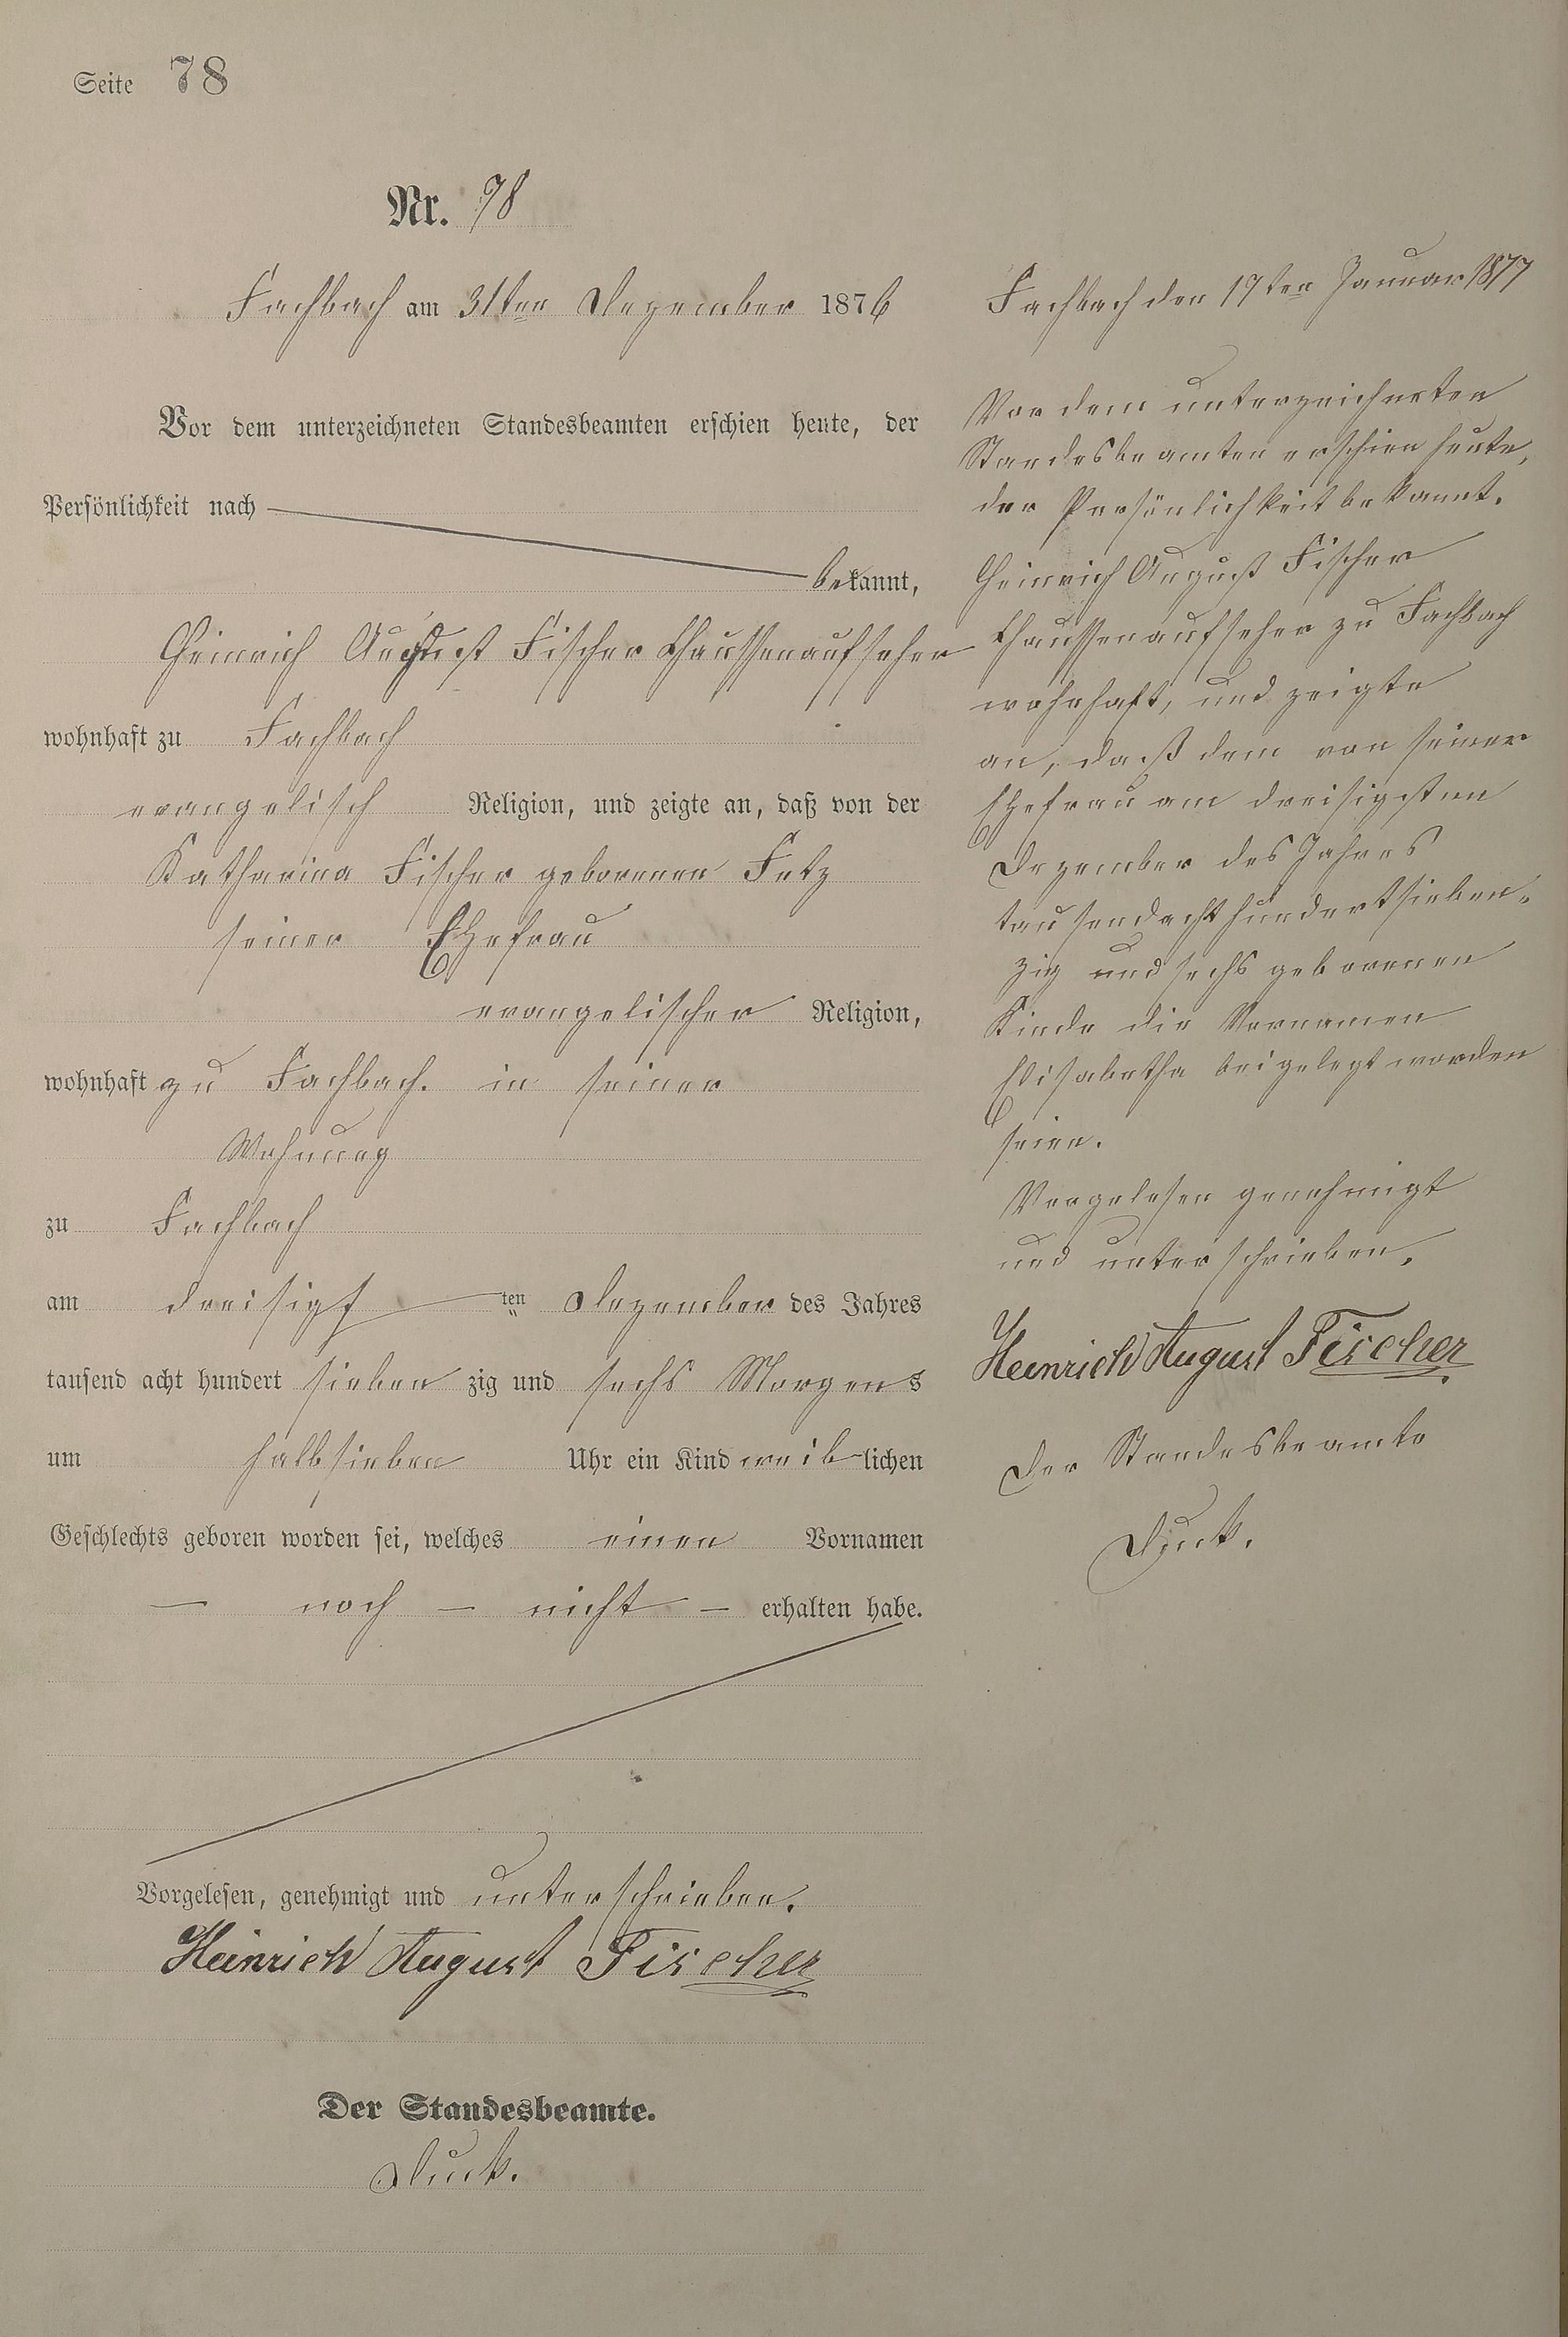 Seite 78
Nr. 78
Fachbach am 31ten Dezember 1876
Vor dem unterzeichneten Standesbeamten erschien heute, der
Persönlichkeit nach
bekannt,
Heinrich August Fischer Chausseeaufseher
wohnhaft zu Fachbach
evangelisch Religion, und zeigte an, daß von der
Katharina Fischer geborenen Fetz
seiner Ehefrau
evangelischer Religion,
wohnhaft zu Fachbach. in seiner
Wohnung
zu Fachbach
am dreisigs ten Dezember des Jahres
tausend acht hundert sieben zig und sechs Morgens
um halbsieben Uhr ein Kind weib-lichen
Geschlechts geboren worden sei, welches einen Vornamen
— noch — nicht — erhalten habe.
Vorgelesen, genehmigt und unterschrieben.
Heinrich August Fischer
Der Standesbeamte.
Fachbach den 19ten Januar 1877
Vor dem unterzeichneten
Standesbeamten erschien heute,
der Persönlichkeit bekannt.
Heinrich August Fischer
Chausseeaufseher zu Fachbach
wohnhaft, und zeigte
an, daß dem von seiner
Ehefrau am dreisigsten
Dezember des Jahres
tausendachthundertsieben-
zig und sechs geborenen
Kinde die Vornamen
Elisabetha beigelegt worden
seien.
Vorgelesen genehmigt
und unterschrieben.
Heinrich August Fischer
Der Standesbeamte